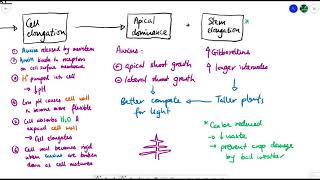 Cell elongation
Apical dominance
+
Stem elongation
*
① Auxins released by meristem
② Auxin binds to receptors
on cell surface membrane
③ H⁺ pumped into cell
→ ↓pH
④ Low pH causes cell wall
to become more flexible
⑤ Cell absorbs H₂O &
expand cell wall
→ Cell elongates
⑥ Cell wall becomes rigid
when auxins are broken
down as cell matures
Auxins:
⊕ apical shoot growth
⊖ lateral shoot growth
Better compete
for light
↑ Gibberellins
↑ longer internodes
Taller plants
* Can be reduced
↓ waste
→ prevent crop damage
by bad weather